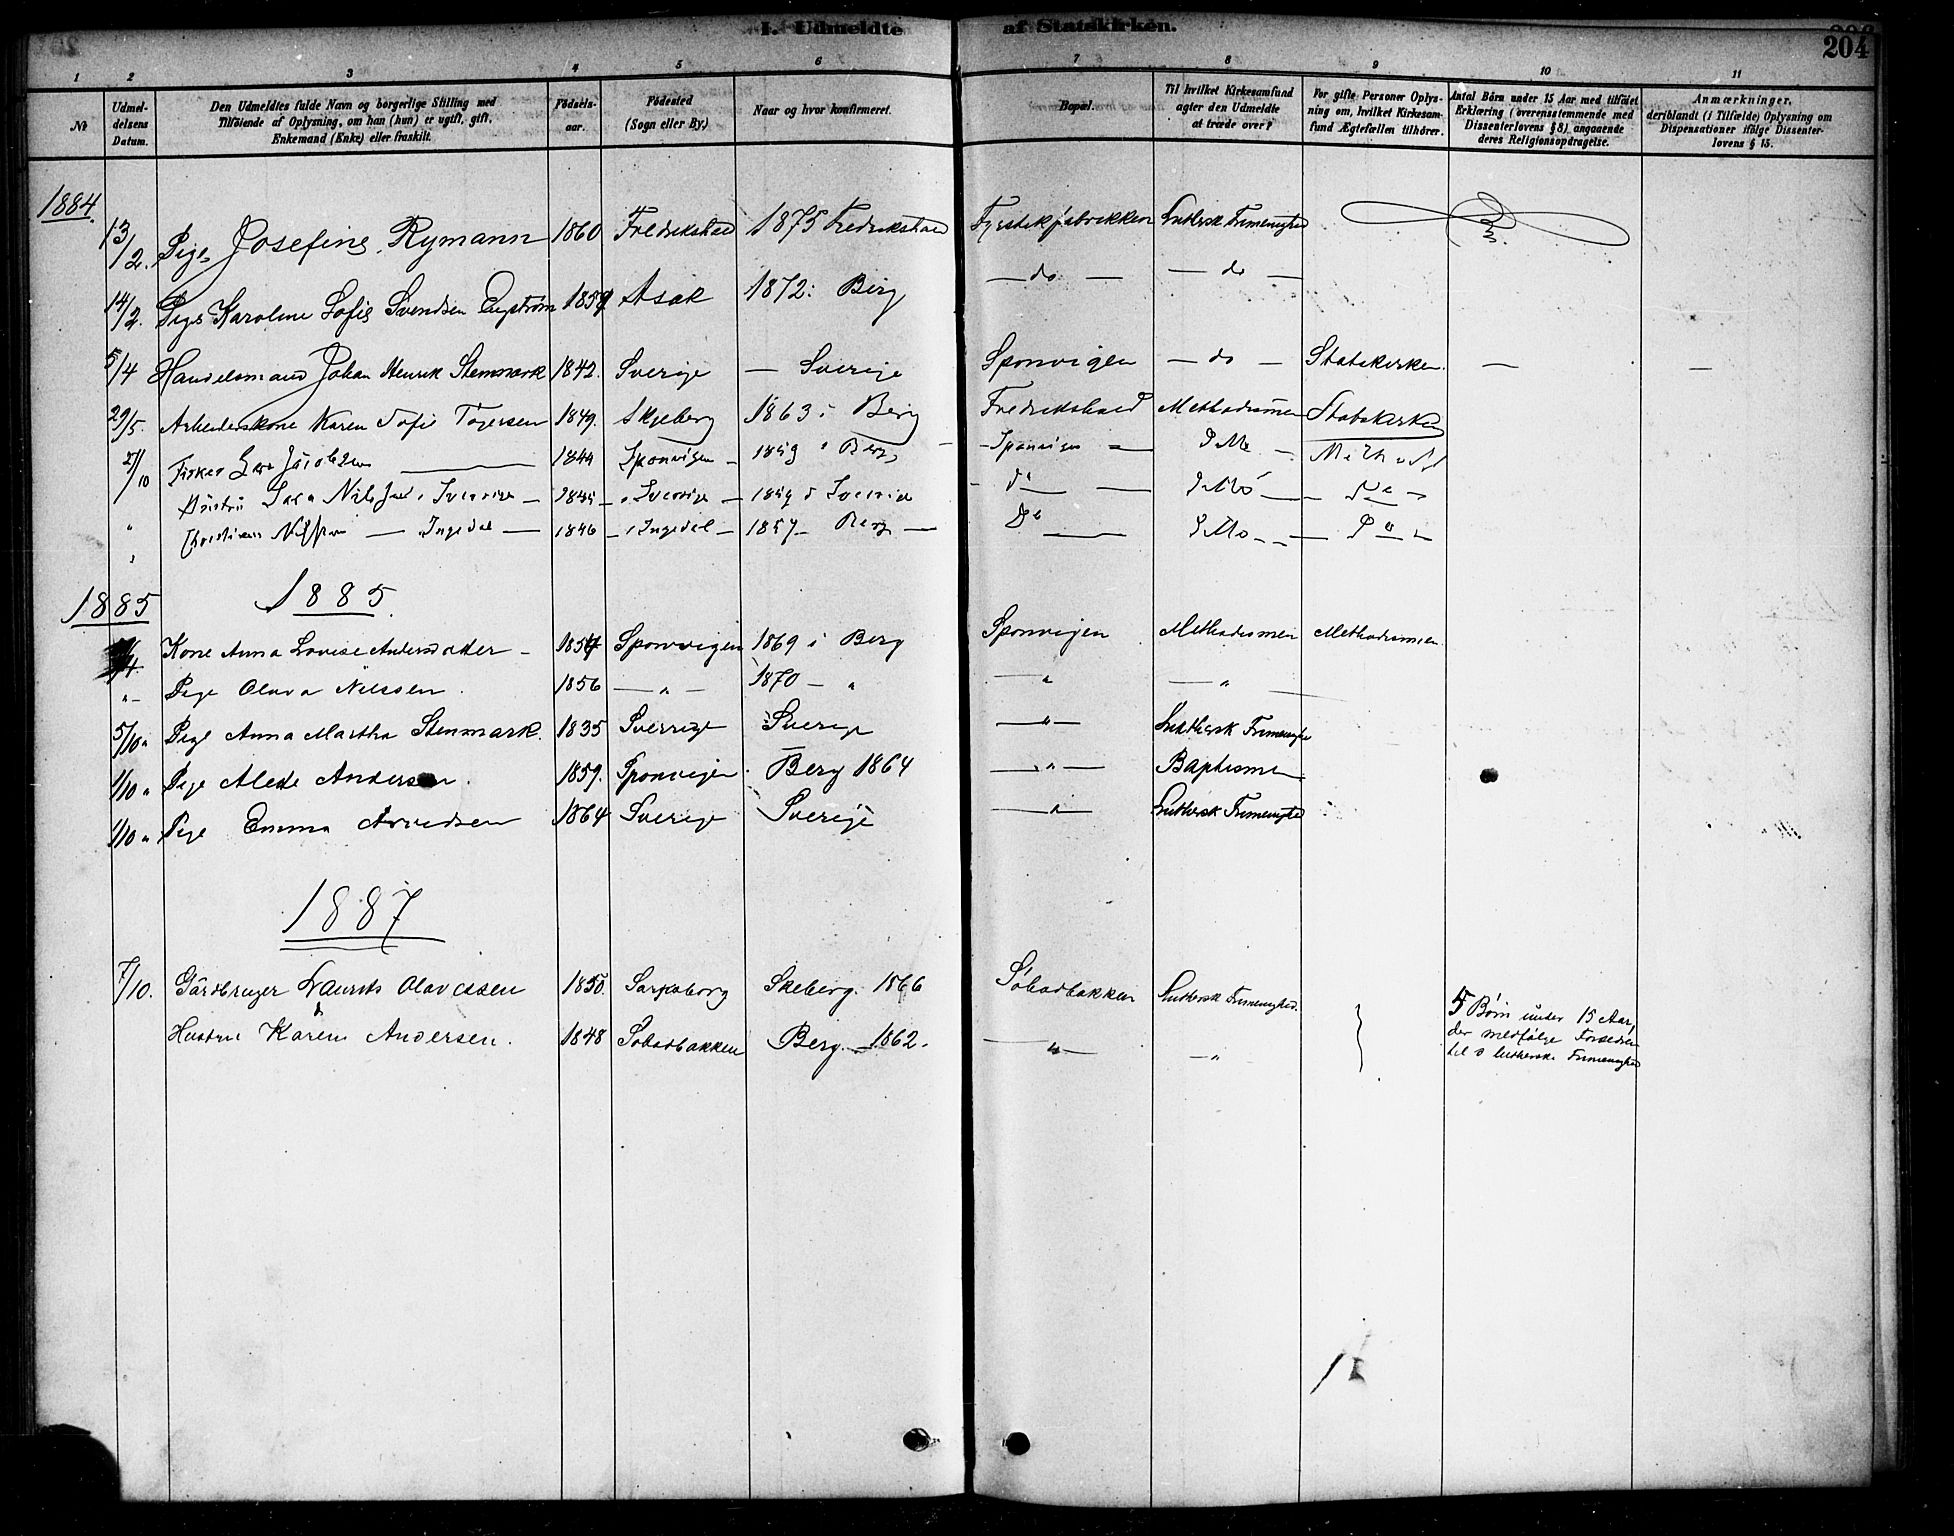 I. Udmeldte af Statskirken.
204
1 2 3 4 5 6 7 8 9 10 11
No
Udmeldelsens Datum.
Den Udmeldtes fulde Navn og borgerlige Stilling med
Tilføiende af Oplysning, om han (hun) er ugift, gift,
Enkemand (Enke) eller fraskilt.
Fødselsaar.
Fødested
(Sogn eller By.)
Naar og hvor konfirmeret.
Bopæl.
Til hvilket Kirkesamfund
agter den Udmeldte
at træde over?
For gifte Personer Oplysning om, hvilket Kirkesamfund Ægtefællen tilhører.
Antal Børn under 15 Aar med tilføiet
Erklæring (overensstemmende med
Dissenterlovens § 8) angaaende
deres Religionsopdragelse.
Anmærkninger,
deriblandt (i Tilfælde) Oplysning om
Dispensationer ifølge Dissenterlovens § 15.
1884.
13/2. Pige Josefine Rymann 1860 Fredrikshald 1875 Fredrikshald Fyrstikfabrikken Luthersk Frimenighed
14/2. Pige Karoline Sofie Svendsen Engström 1857 Asak 1872: Berg — do — — do —
5/4 Handelsmand Johan Henrik Stenmark 1842. Sverige — Sverige Sponvigen — do — Statskirken. — —
29/5. Arbeiderskone Karen Sofie Togersen 1849. Skjeberg 1863 i Berg Fredrikshald Methodismen Statskirken
2/10 Fisker Jacobsen — 1844 Sponvigen — 1859 " Berg, — Sponvigen — Method
" Hustru Nilsson Sverrige — 1845 — Sverrige — 1859 Sverrige — do — —
" Nilsson — Ingedal — 1846 — Ingedal — 1857 — Berg — Do —
1885 1885.
/4. Kone Anna Lovise Andersdatter — 1854 Sponvigen 1869 i Berg Sponvigen Methodismen Methodismen
"— Pige Olava Nilssen. 1856 — " — 1870 — " — " — " —
5/10 " Pige Anna Martha Stenmark. 1835 Sverrige Sverige — " — Luthersk Frimenighed
1/10 " Pige Alede Andersen. 1859. Sponvigen. Berg 1864 — " — Baptismen
1/10 " Pige Emma Arvedsen 1864 Sverige Sverige — " — Luthersk Frimenighed
1887
7/10. Gårdbruger Laurits Olavessen 1850. Sarpsborg Skeberg. 1866 Luthersk Frimenighed.
&
Hustru Karen Andersen. 1848 Berg — 1862. — " — — " —
5 Børn under 15 Aar,
der medfølge Forældre
til lutherske Frimenighed